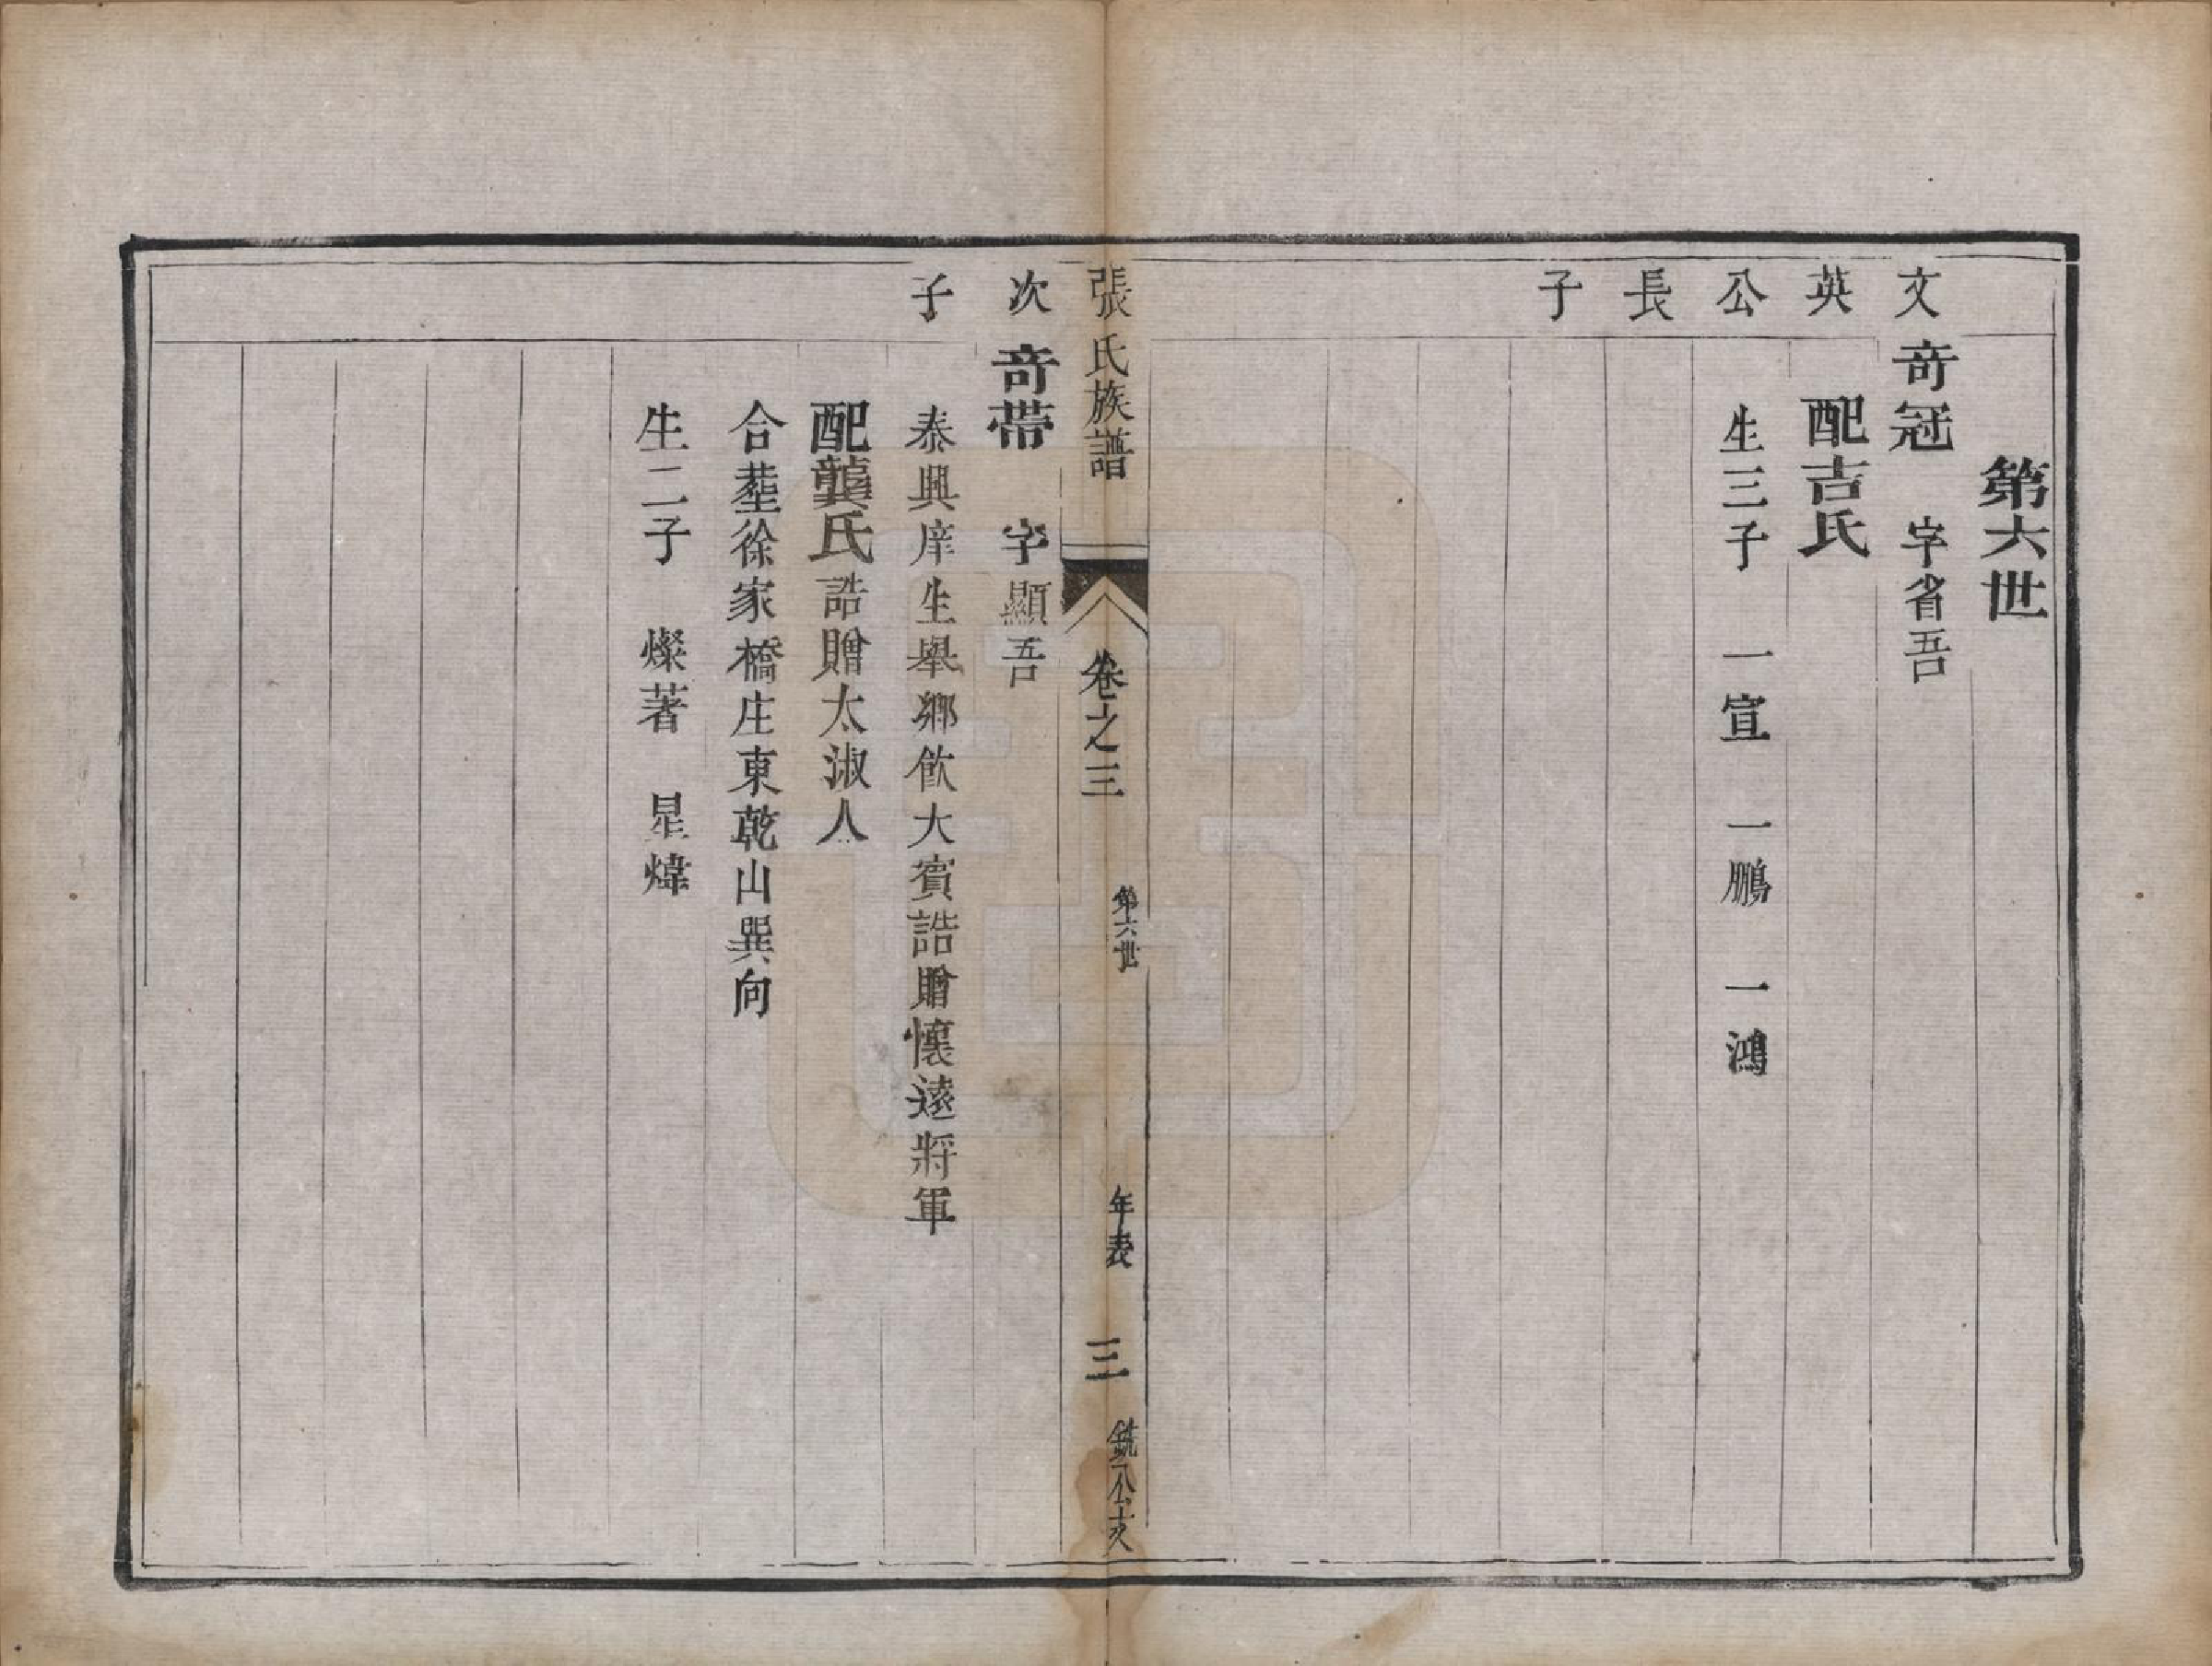 第六世
文英公長子
奇冠　字省吾
配吉氏
生三子　一宣　一鵬　一鴻
張氏族譜　卷之三　第六世　年表　三　銑公支
次子
奇帶　字顯吾
泰興庠生舉鄉飲大賓誥贈懷遠將軍
配龔氏誥贈太淑人
合塟徐家橋庄東乾山巽向
生二子　燦著　星煒